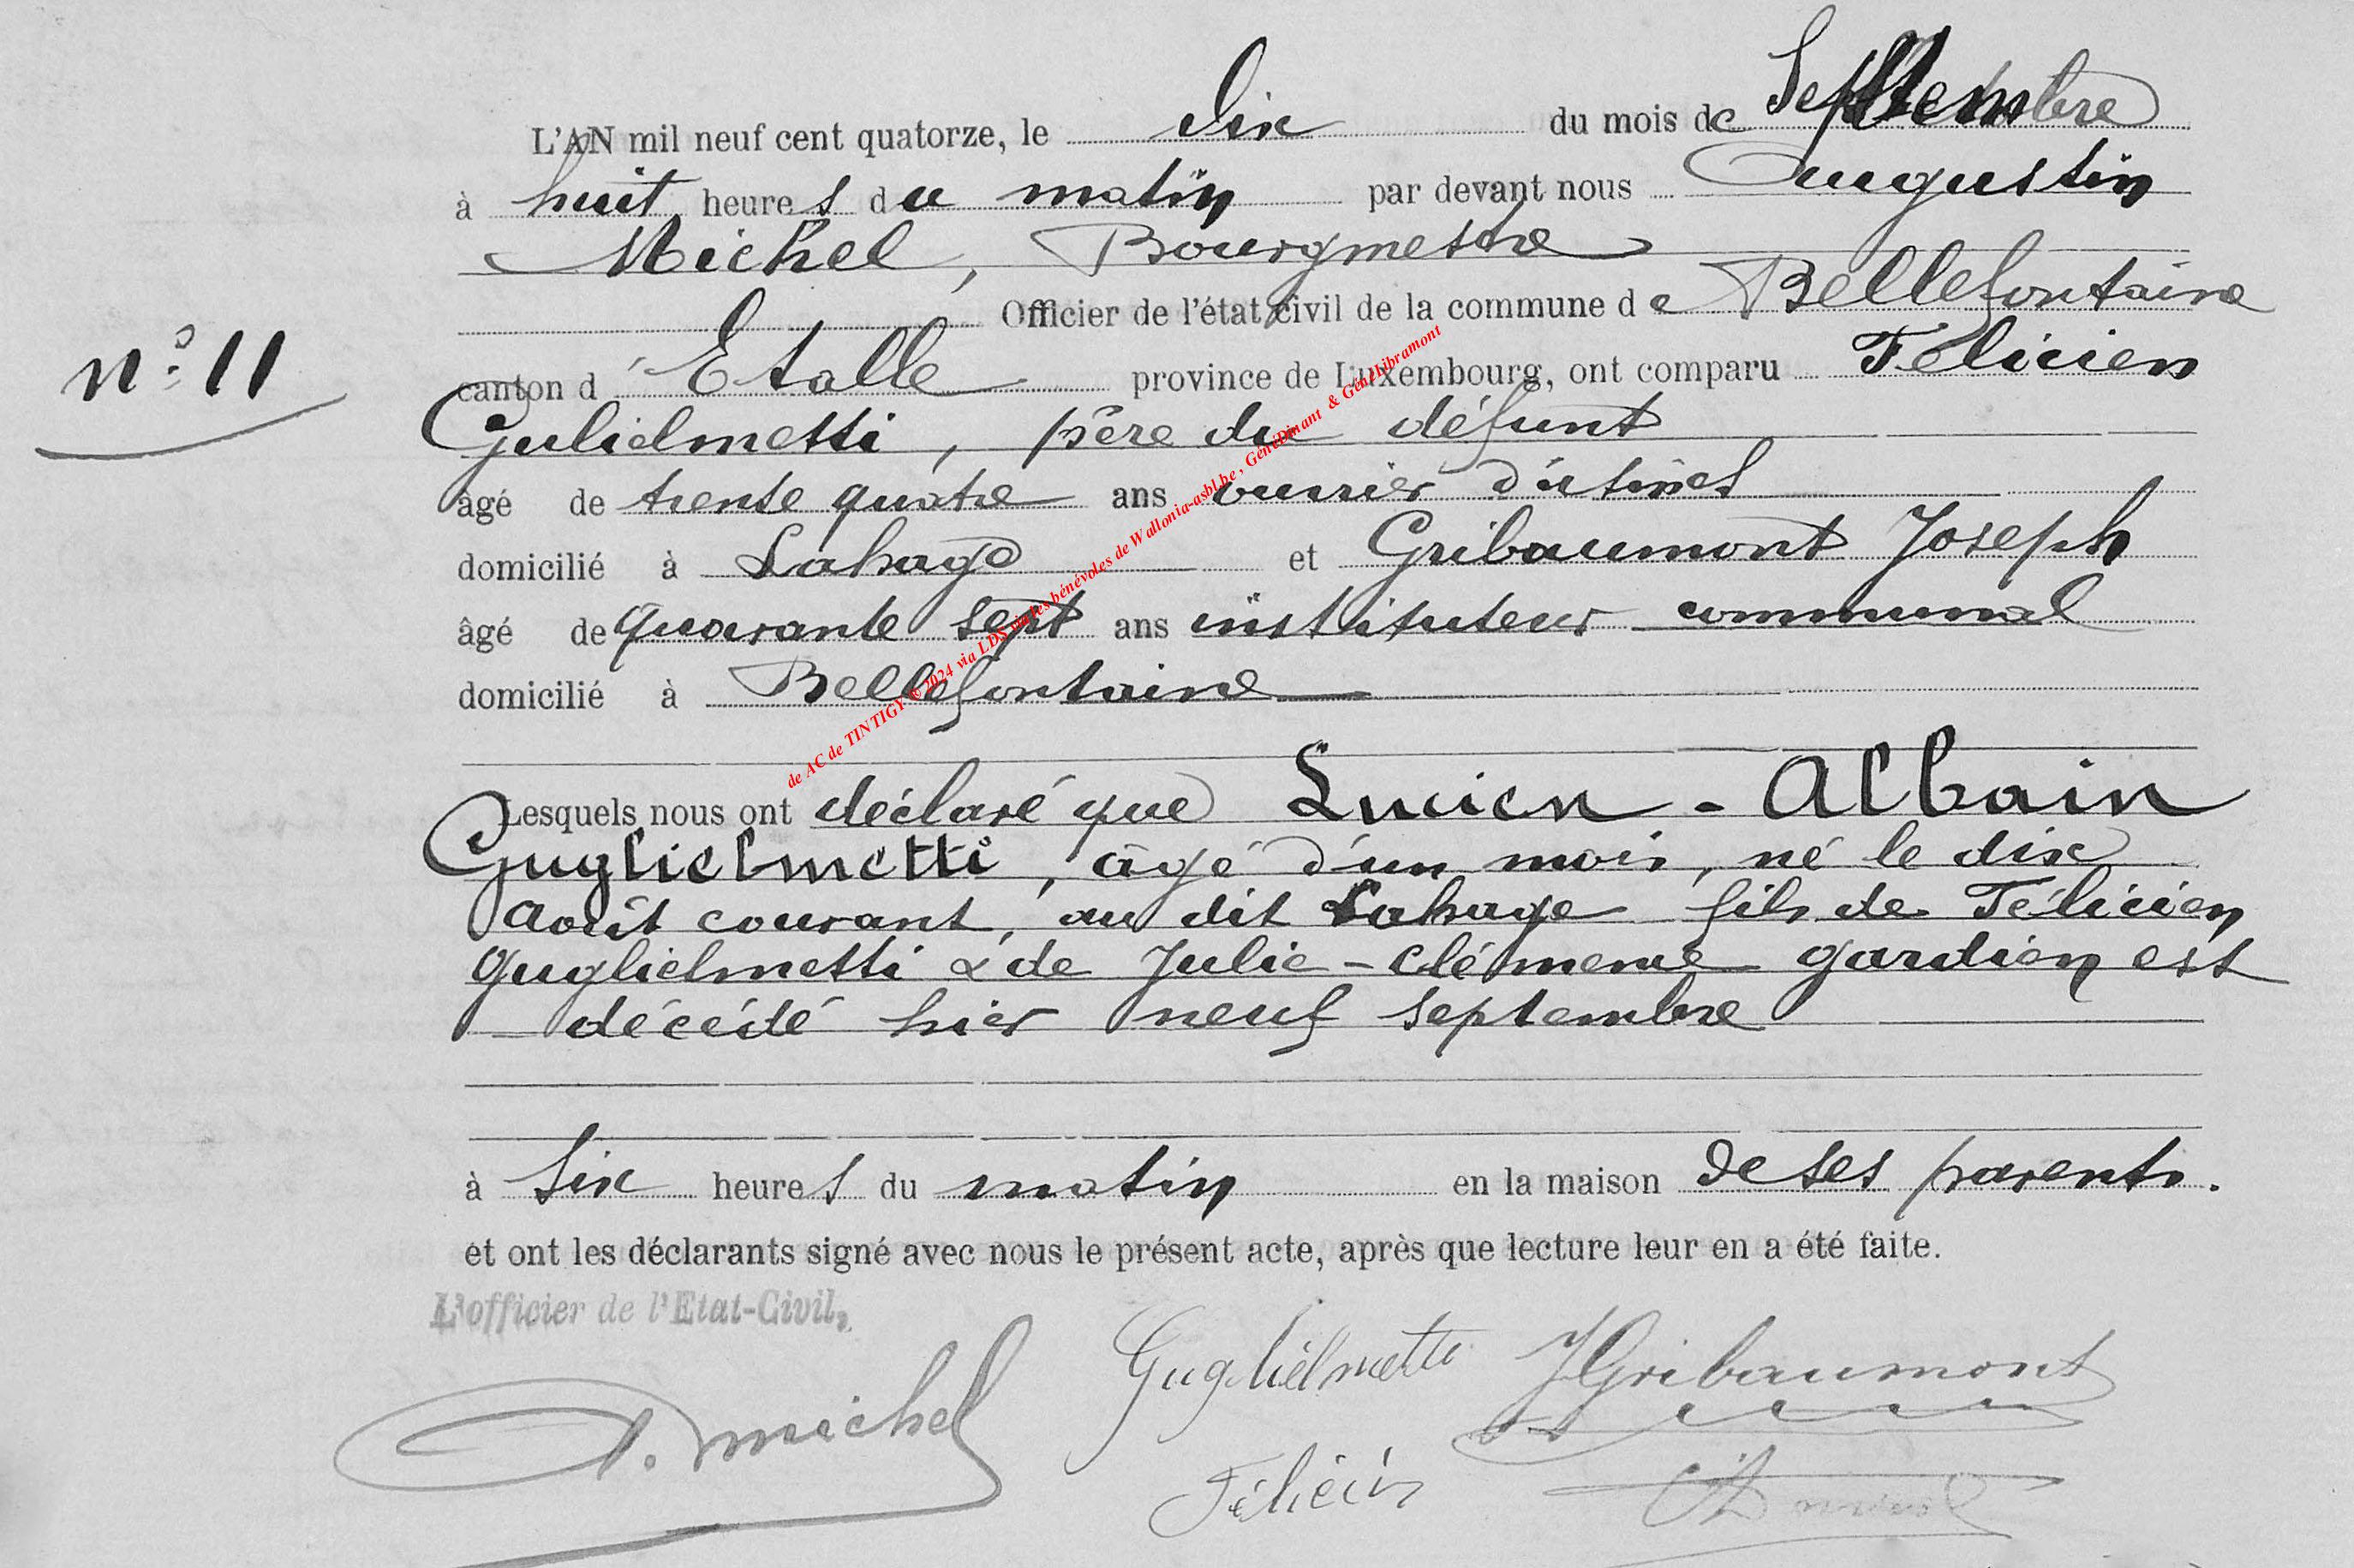 L'AN mil neuf cent quatorze, le dix du mois de Septembre
à huit heures du matin par devant nous Augustin
Michel, Bourgmestre
Officier de l'état civil de la commune de Bellefontaine
n° 11
canton d'Etalle province de Luxembourg, ont comparu Félicien
Gulielmetti, père du défunt
âgé de trente quatre ans ouvrier d'usines
domicilié à Lahage et Gribaumont Joseph
âgé de quarante sept ans instituteur communal
domicilié à Bellefontaine
de AC de TINTIGY © 2024 via LDS via les bénévoles de Wallonia-asbl.be, GénéDinant & GénéLibramont
Lesquels nous ont déclaré que Lucien - Albain
Guglielmetti, âgé d'un mois, né le dix
août courant, au dit Lahage fils de Félicien
Guglielmetti & de Julie - Clémence Gardien est
décédé hier neuf septembre
à six heures du matin en la maison de ses parents.
et ont les déclarants signé avec nous le présent acte, après que lecture leur en a été faite.
L'officier de l'Etat-Civil,
A. Michel
Guglielmetti JGribaumont
Félicien